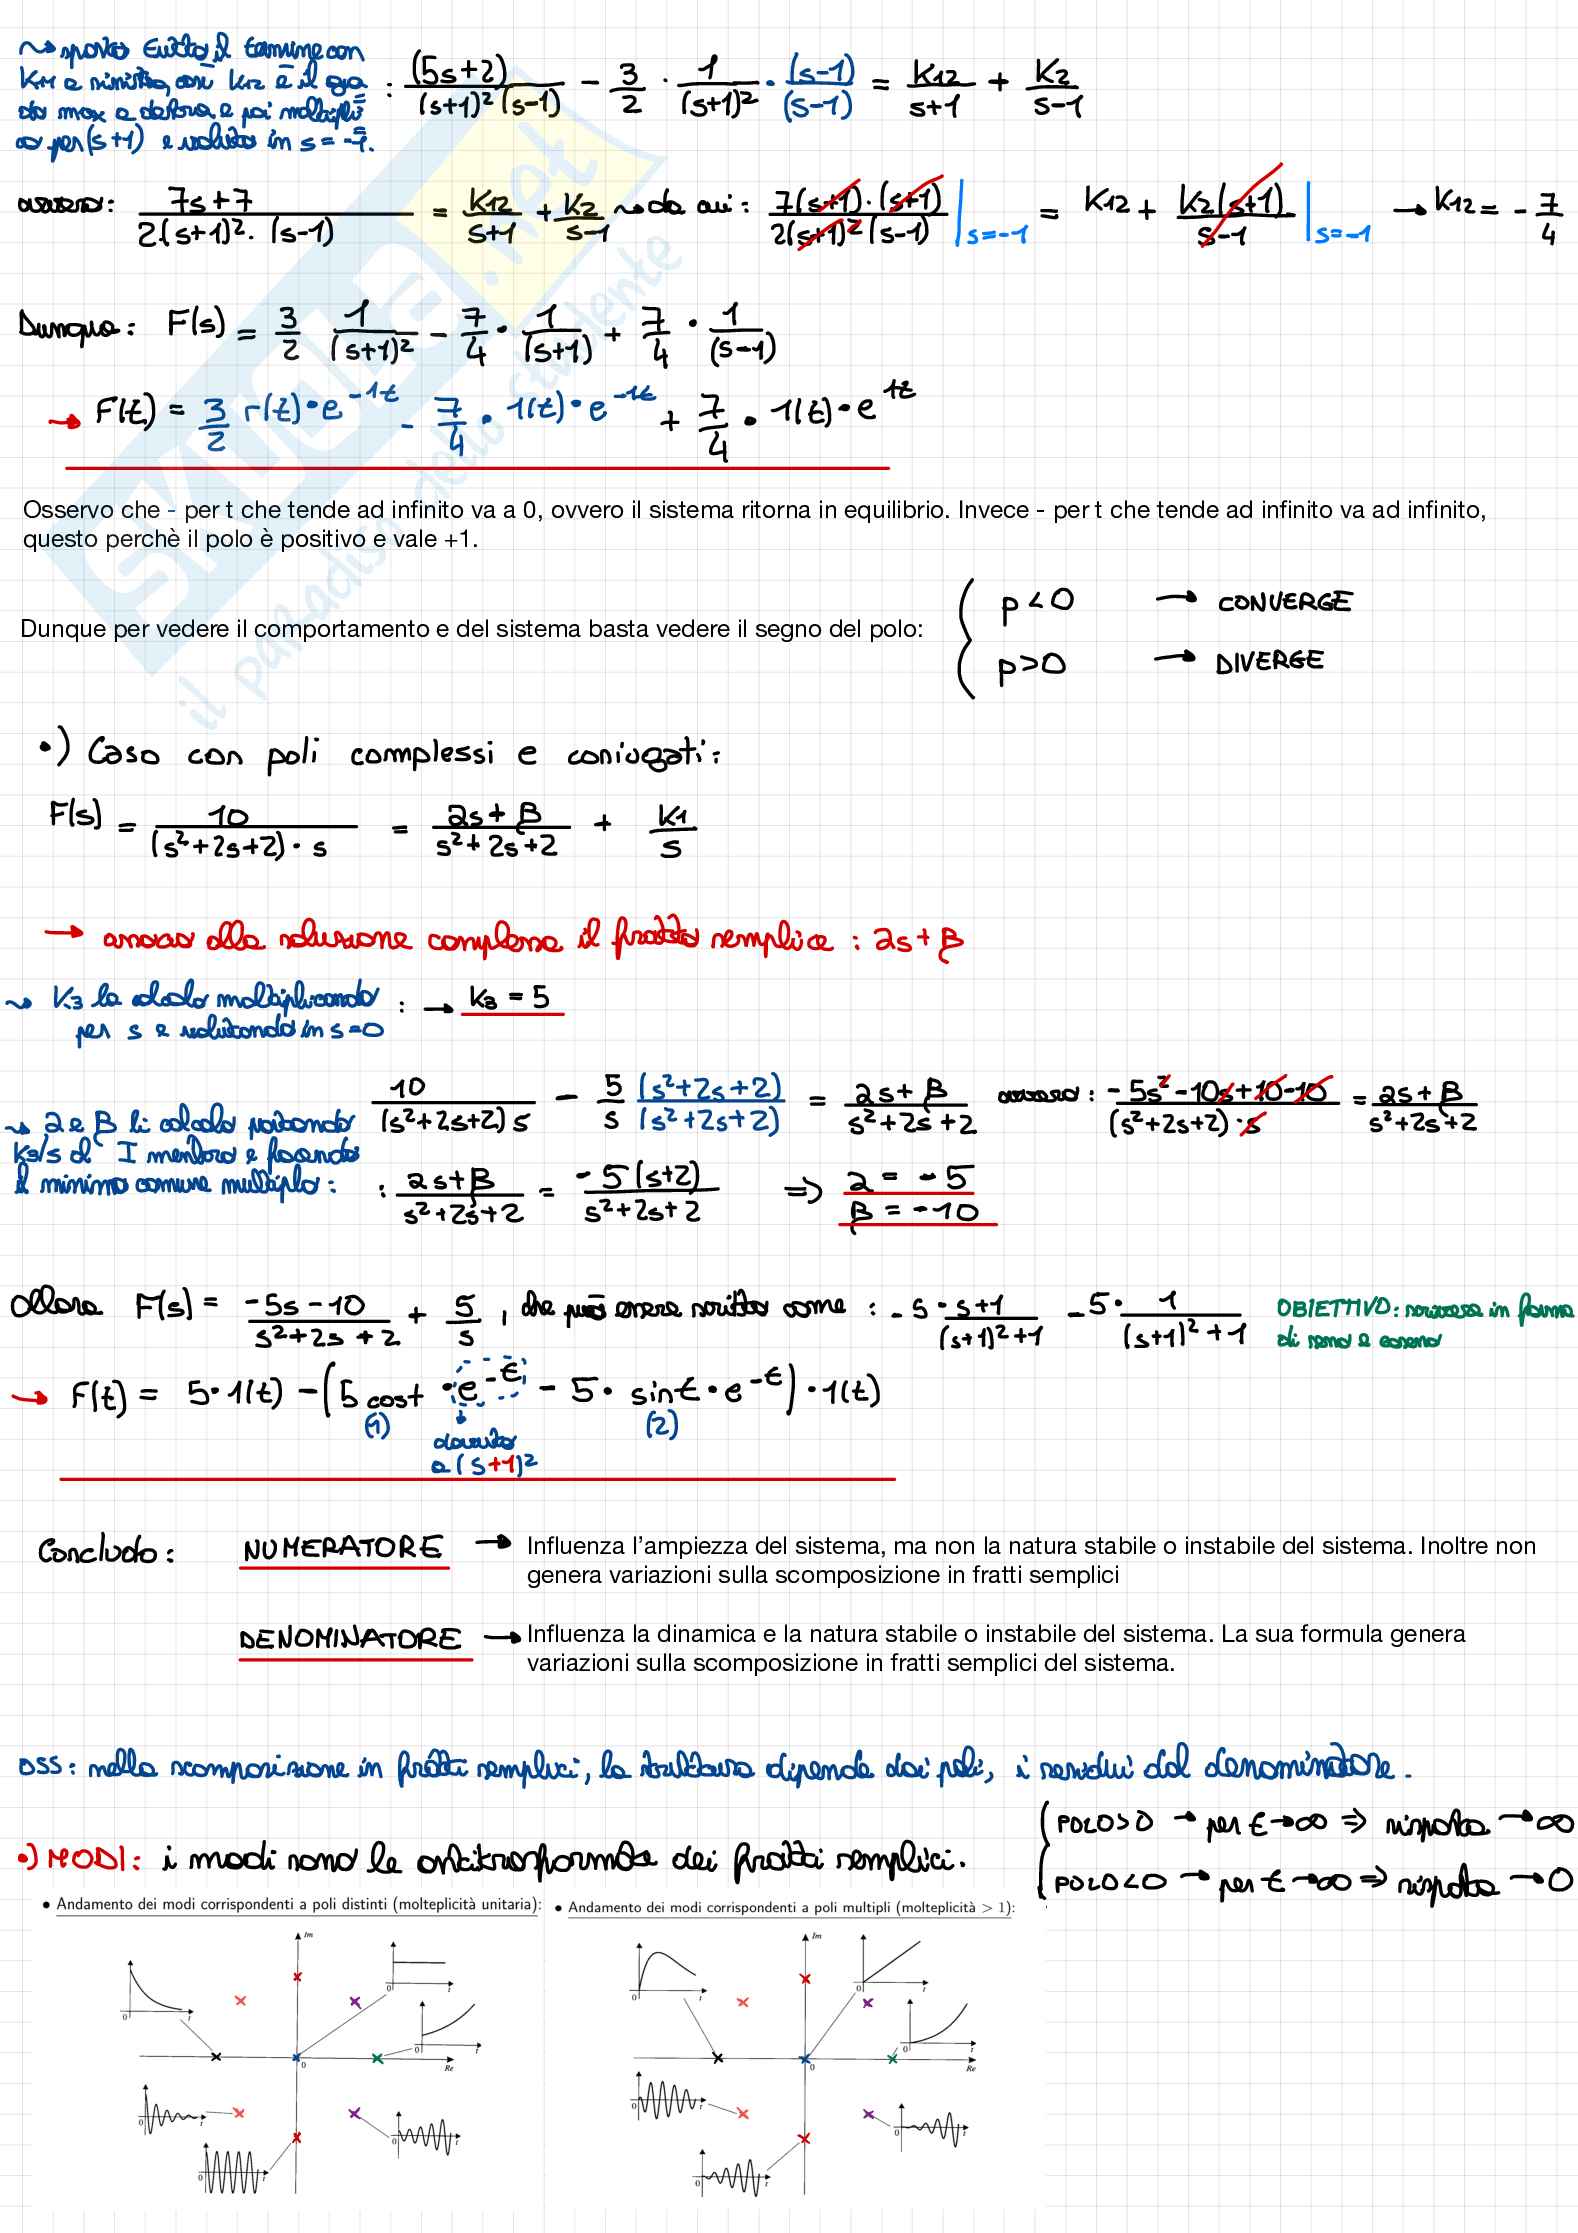 ~> sposto tutto il termine con
K11 a sinistra, così K12 è il gra
do max a destra e poi moltipli
co per (s+1) e valuto in s = -1.
: (5s+2)/((s+1)²(s-1)) - 3/2 · 1/(s+1)² · (s-1)/(s-1) = K12/(s+1) + K2/(s-1)
ovvero: (7s+7)/(2·(s+1)²·(s-1)) = K12/(s+1) + K2/(s-1) ~> da qui: 7(s+1)·(s+1)/(2(s+1)²(s-1)) |s=-1 = K12 + K2(s+1)/(s-1) |s=-1 → K12 = -7/4
Dunque: F(s) = 3/2 1/(s+1)² - 7/4 · 1/(s+1) + 7/4 · 1/(s-1)
→ F(t) = 3/2 r(t)·e^-1t - 7/4 · 1(t)·e^-1t + 7/4 · 1(t)·e^1t
Osservo che - per t che tende ad infinito va a 0, ovvero il sistema ritorna in equilibrio. Invece - per t che tende ad infinito va ad infinito,
questo perchè il polo è positivo e vale +1.
Dunque per vedere il comportamento e del sistema basta vedere il segno del polo:
p<0 → CONVERGE
p>0 → DIVERGE
•) Caso con poli complessi e coniugati:
F(s) = 10/((s²+2s+2)·s) = (2s+β)/(s²+2s+2) + K1/s
→ associo alla soluzione complessa il fratto semplice : 2s+β
~> K3 la calcolo moltiplicando
per s e valutando in s=0
: → K3 = 5
~> 2 e β li calcolo portando
K3/s al I membro e facendo
il minimo comune multiplo:
10/((s²+2s+2)s) - 5/s (s²+2s+2)/(s²+2s+2) = (2s+β)/(s²+2s+2) ovvero: (-5s²-10s+10-10)/((s²+2s+2)·s) = (2s+β)/(s²+2s+2)
: (2s+β)/(s²+2s+2) = -5(s+2)/(s²+2s+2) => 2 = -5
β = -10
allora F(s) = (-5s-10)/(s²+2s+2) + 5/s , che può essere scritta come : -5·(s+1)/((s+1)²+1) -5·1/((s+1)²+1)
OBIETTIVO: scrivere in forma
di seno e coseno
→ F(t) = 5·1(t) - (5 cost ·e^-t - 5· sint·e^-t)·1(t)
(1) (2)
dovuto
a (s+1)²
Concludo:
NUMERATORE → Influenza l'ampiezza del sistema, ma non la natura stabile o instabile del sistema. Inoltre non
genera variazioni sulla scomposizione in fratti semplici
DENOMINATORE → Influenza la dinamica e la natura stabile o instabile del sistema. La sua formula genera
variazioni sulla scomposizione in fratti semplici del sistema.
OSS: nella scomposizione in fratti semplici, la struttura dipende dai poli, i residui dal denominatore.
•) MODI: i modi sono le antitrasformate dei fratti semplici.
POLO>0 → per t→∞ => risposta → ∞
POLO<0 → per t→∞ => risposta → 0
• Andamento dei modi corrispondenti a poli distinti (molteplicità unitaria):
• Andamento dei modi corrispondenti a poli multipli (molteplicità > 1):
Im
0
t
0
t
0
t
0
Re
0
t
0
t
0
t
Im
0
t
0
t
0
t
0
Re
0
t
0
t
0
t
SKUOLA.net
il paradiso dello studente